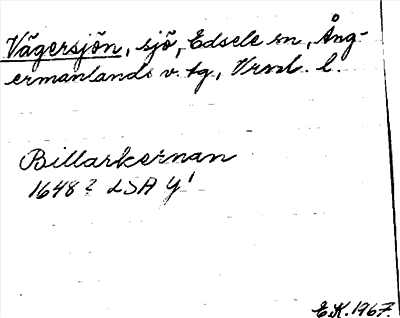 Vägersjön, sjö, Edsele sn, Ång-
ermanlands v. tg., Vrml. l.
Billarkernan
1648? LSA Y1
E.K. 1967.